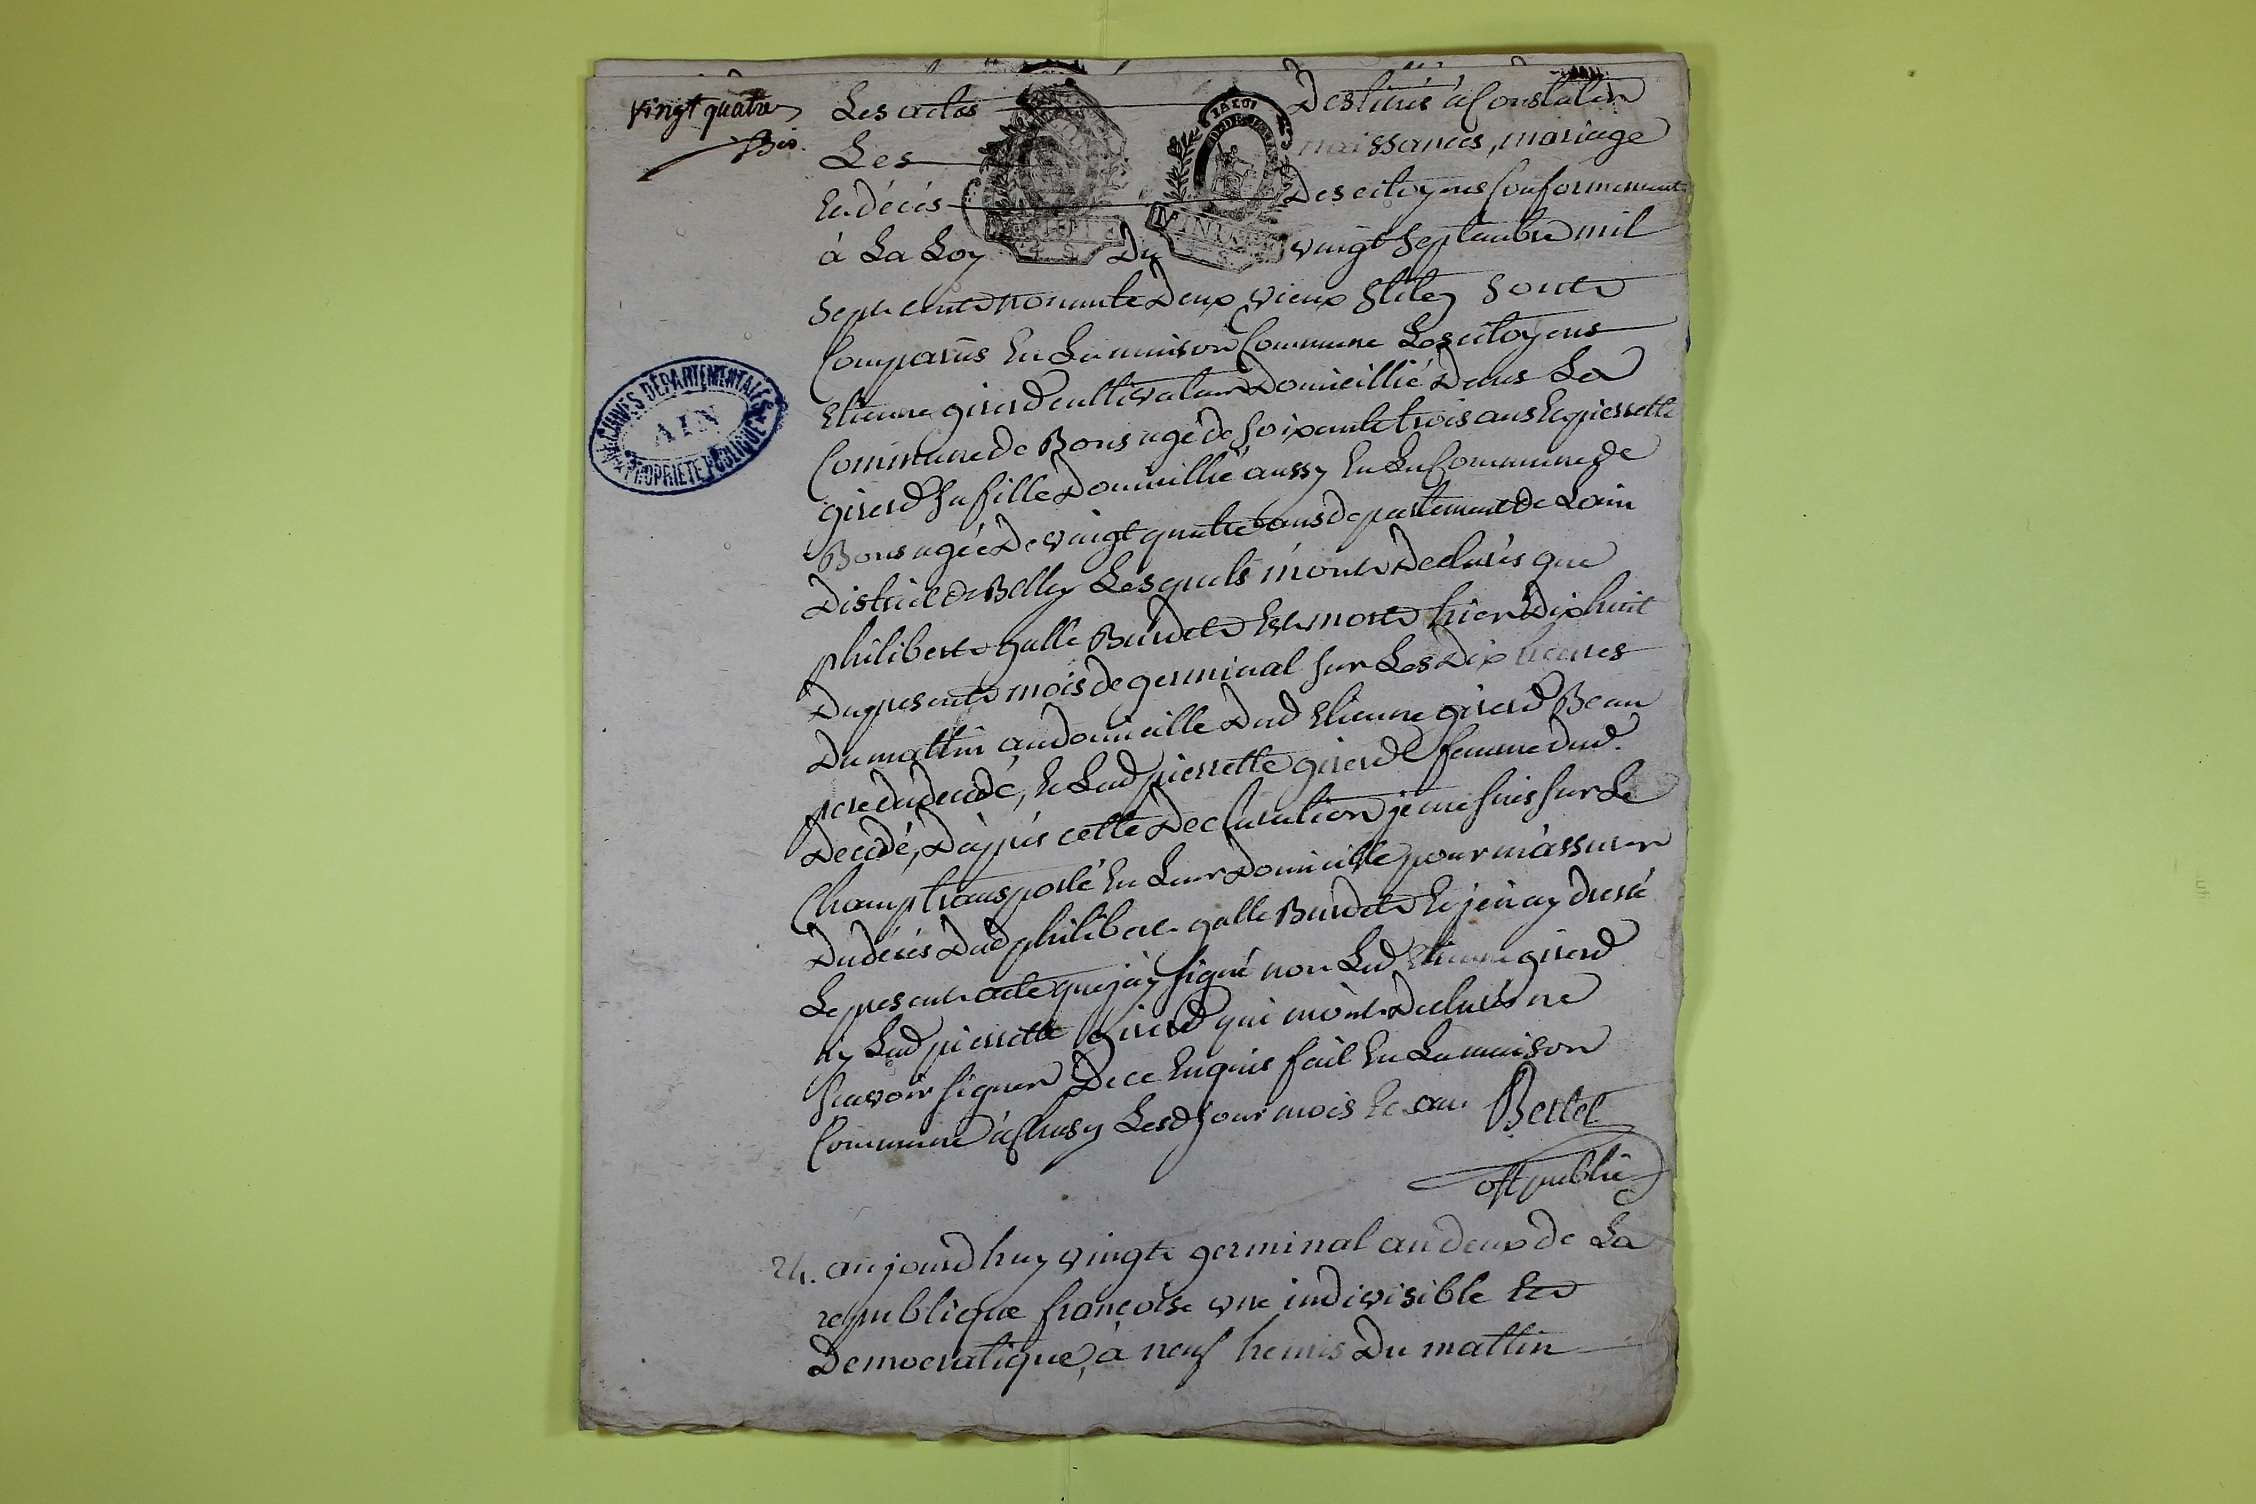 vingt quatre
Bis.
Les actes Destinés à Constater
Les naissances, mariage
Et décés Des citoyens Conformement
à La Loy Du vingt Septembre mil
Sept cent nonante deux vieux Stiley Sont
Comparüs En La maison Commune Les citoyens
Etienne girerd cultivateur Domicillié Dans La
Commune de Bons agé de Soixante trois ans Et pierrette
girerd Sa fille Domicillié aussy En La Commune de
Bons agée De vingt quatre ans departement de Lain
District De Belley Lesquels m'ont Declarés que
philibert galle Burdet Est mort hier Dix huit
Du present mois de germinal Sur Les Dix heures
Du mattin au domicille Dud Etienne girerd Beau
pere du decedé, Et Lad pierrette girerd femme dud.
Decedé, D'après cette Declaration je me suis Sur Le
Champ transporté En Leur Domicille pour m'assurer
Du décés Dud philibert galle Burdet Et j'en ay dressé
Le present acte que j'ay signé non Led Etienne girerd
ny Lad pierrette Girerd qui m'ont Declarés ne
Scavoir signer De ce Enquis fait En La maison
Commune à Chusy Lesd jour mois Et an. Bertet
off public
24. aujourd huy vingt germinal an deux de La
republique françoise une indivisible Et
Democratique, à neuf heures Du mattin
ARCHIVES DÉPARTEMENTALES
AIN
PROPRIÉTÉ PUBLIQUE